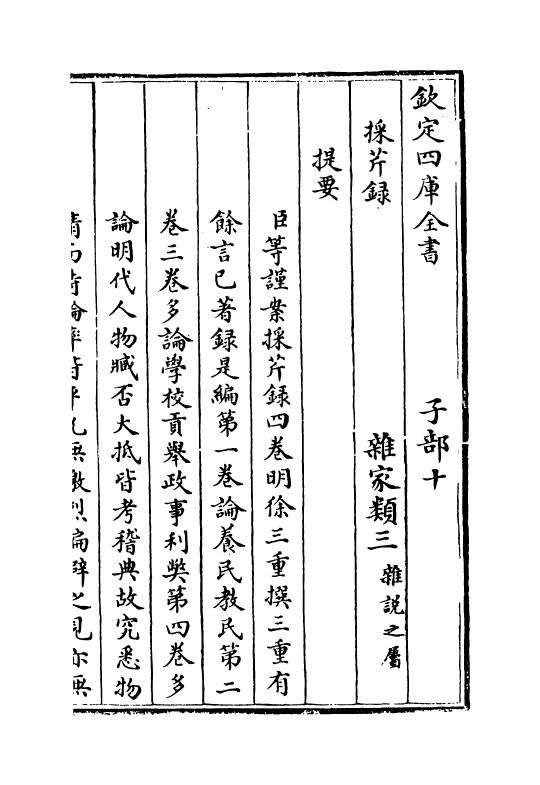 欽定四庫全書　子部十
採芹録　雜家類三雜説之屬
提要
臣等謹案採芹録四卷明徐三重撰三重有
餘言已著録是編第一卷論養民教民第二
卷三卷多論學校貢舉政事利弊第四卷多
論明代人物臧否大抵皆考稽典故究悉物
情而持論率持平見無激烈偏僻之見亦無